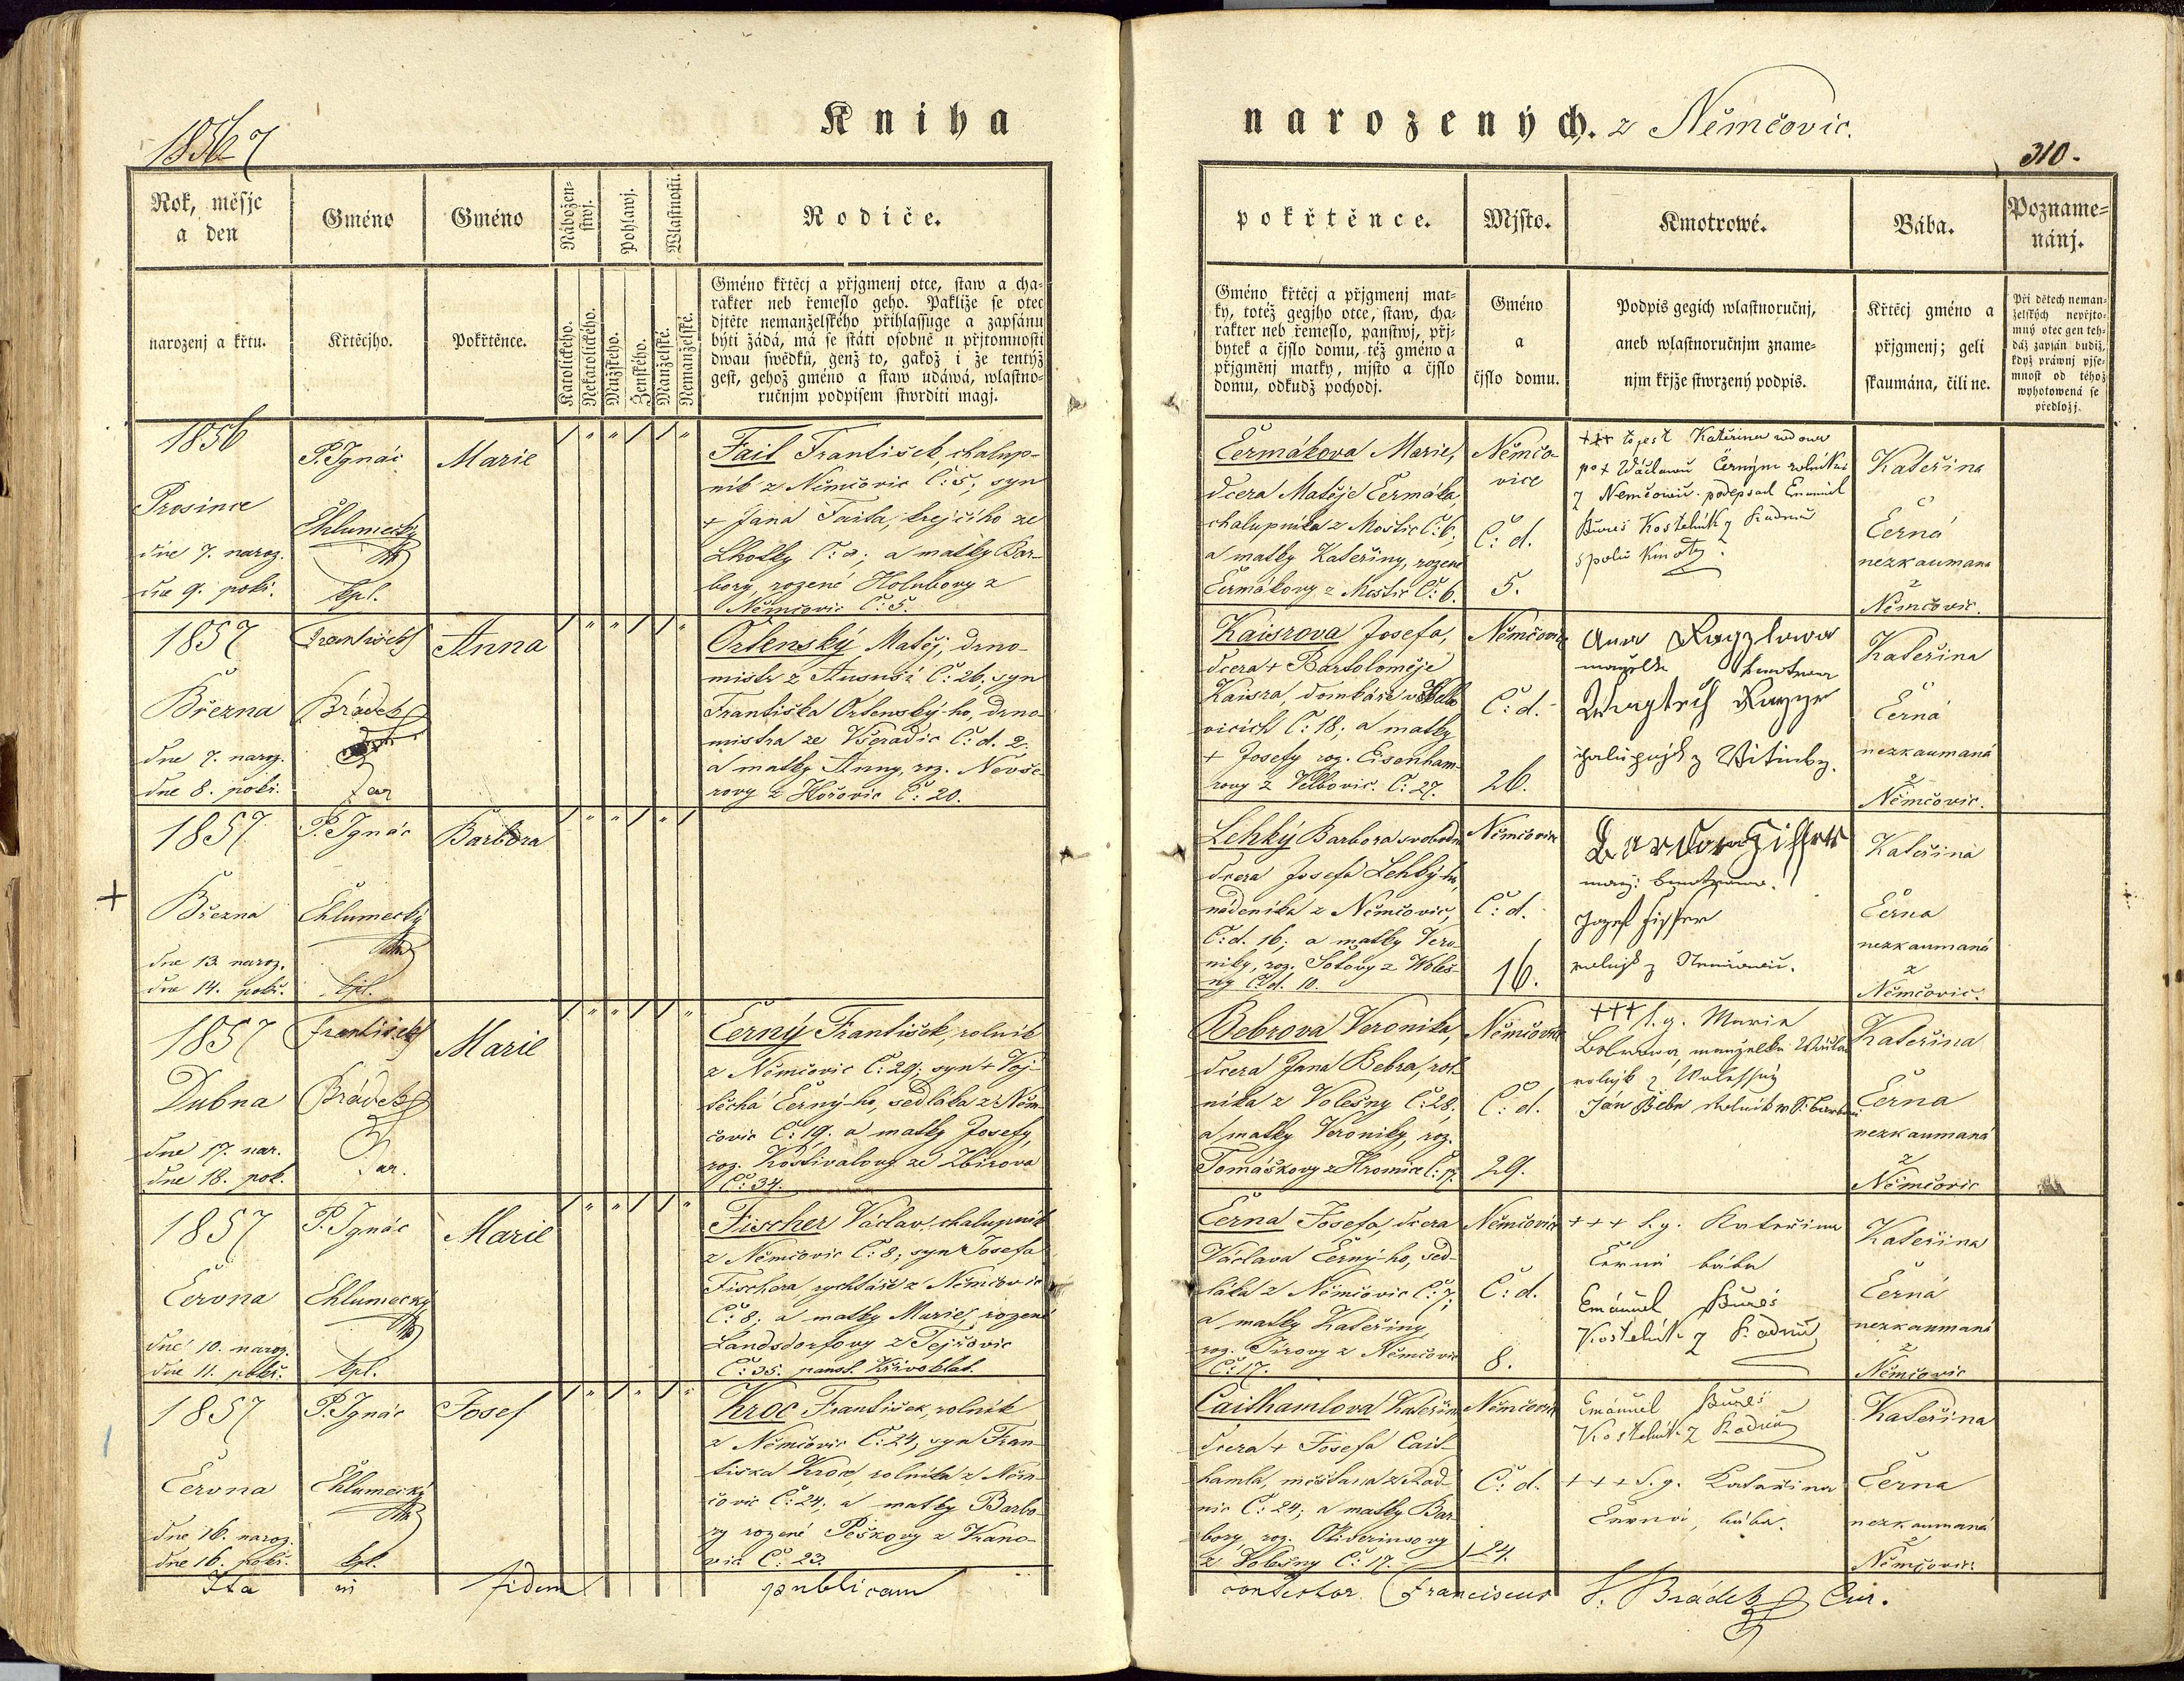 1856 7
Kniha
Rok, měsjc
a den
narozenj a křtu.
Gméno
Křtěcjho.
Gméno
Pokřtěnce.
Nábožen-
stwj.
Pohlawj.
Wlastnosti.
Katolického.
Nekatolického.
Mužského.
Ženského.
Manželské.
Nemanželské.
Rodiče.
Gméno křtěcj a přjgmenj otce, staw a cha-
rakter neb řemeslo geho. Pakliže se otec
djtěte nemanželského přihlassuge a zapsánu
býti žádá, má se státi osobně u přjtomnosti
dwau swědků, genž to, gakož i že tentýž
gest, gehož gméno a staw udáwá, wlastno-
ručnjm podpisem stwrditi magj.
1856
Prosince
dne 7. naroz.
dne 9. pokř.
P. Ignác
Chlumecký
kpl.
Marie
Fait František, chalup-
ník z Němčovic Č: 5; syn
+ Jana Faita, krejčího ze
Lhotky Č: 2; a matky Bar-
bory, rozené Holubovy z
Němčovic Č: 5.
1857
Března
dne 7. naroz.
dne 8. pokř.
František
Brádek
far
Anna
Orlenský Matěj, drno-
mistr z Č: 26, syn
Františka Orlenský-ho, drno-
mistra ze Všeradic Č: d. 2;
a matky Anny, roz. Nevše-
rovy z Hořovic Č: 20.
1857
Března
dne 13. naroz.
dne 14. pokř.
P. Ignác
Chlumecký
kpl.
Barbora
1857
Dubna
dne 17. nar.
dne 18. pok.
František
Brádek
Far.
Marie
Černý František, rolník
z Němčovic Č: 29; syn + Voj-
těcha Černý-ho, sedláka z Něm-
čovic Č: 19. a matky Josefy,
roz. Kostivalovy ze Zbirova
Č: 34.
1857
Června
dne 10. naroz.
dne 11. pokř.
P. Ignác
Chlumecký
kpl.
Marie
Fischer Václav, chalupník
z Němčovic Č: 8; syn Josefa
Fischera, rychtáře z Němčovic
Č: 8; a matky Marie, rozené
Landsdorfovy z Tejřovic
Č: 35. panst. Křivoklat.
1857
Června
dne 16. naroz.
dne 16. pokř.
P. Ignác
Chlumecký
kpl.
Josef
Kroc František, rolník
z Němčovic Č: 24, syn Fran-
tiska Kroca, rolníka z Něm-
čovic Č: 24; a matky Barbo-
ry rozené Peškovy z Kano-
vic Č: 23.
Ita in fidem publicam
narozených. z Němčovic.
310.
pokřtěnce.
Gméno křtěcj a přjgmenj mat-
ky, totéž gegjho otce, staw, cha-
rakter neb řemeslo, panstwj, přj-
bytek a čjslo domu, též gméno a
přjgměnj matky, mjsto a čjslo
domu, odkudž pochodj.
Mjsto.
Gméno
a
čjslo domu.
Kmotrowé.
Podpis gegich wlastnoručnj,
aneb wlastnoručnjm zname-
njm křjže stwrzený podpis.
Bába.
Křtěcj gméno a
přjgmenj; geli
skaumána, čili ne.
Pozname-
nánj.
Při dětech neman-
želských nevějto-
mný otec gen teh-
dáž zapsán budiž,
když práwnj pjse-
mnost od téhož
wyhotowená se
předložj.
Čermákova Marie,
dcera Matěje Čermáka,
chalupníka z Mostic Č: 6,
a matky Kateřiny, rozené
Čermákovy z Mostic Č: 6.
Němčo-
vice
Č: d.
5.
+++ to jest Kateřina wdowa
po + Wáclawu Černým rolníku
z Nemčowic podepsal Emanuel
Bureš Kostelník z Radnic
spolu kmotr.
Kateřina
Černá
nezkaumana
z
Němčovic.
Kaisrova Josefa,
dcera + Bartoloměje
Kaisra, domkáře v
vicích Č: 18; a matky
+ Josefy roz. Eisenham-
rovy z Velbovic. Č: 27.
Němčovice
Č: d.
26.
Anna
manželka kmotrowa
chalupnjk z Witinky.
Kateřina
Černá
nezkaumaná
z
Němčovic.
Lehký Barbora svobodná
dcera Josefa Lehký-ho,
nádeníka z Němčovic,
Č: d. 16; a matky Vero-
niky, roz. Sotovy z Woleš-
ny Č: d. 10.
Němčovice
Č: d.
16.
manž: kmotrowa.
Jozef Fisser
rolnjk z Nemčowic.
Kateřina
Černa
nezkaumaná
z
Němčovic.
Bebrova Veronika,
dcera Jana Bebra, rol-
níka z Volešny Č: 28,
a matky Veroniky, roz.
Tomáškovy z Hromice Č: 17.
Němčovice
Č: d.
29.
+++ t. g. Maria
Bebrowa, manželka
rolnjk z Wolessny
Ján Bebr rolník
Kateřina
Černa
nezkaumaná
z
Němčovic
Černa Josefa, dcera
Václava Černý-ho, sed-
láka z Němčovic Č: 7;
a matky Kateřiny
roz. Jírovy z Němčovic
Č: 17.
Němčovice
Č: d.
8.
+++ t. g. Kateřina
Černá bába
Emánuel Bureš
Kostelník z Radnic
Kateřina
Černá
nezkaumaná
z
Němčovic
Caithamlova Kateřina
dcera + Josefa Cait-
hamla, měšťana z Rad-
nic Č: 24; a matky Bar-
bory, roz.
z Volešny Č: 17.
Němčovice
Č: d.
24.
Emánuel Bureš
Kostelník z Radnic
+++ t. g. Kateřina
Černá, bába.
Kateřina
Černa
nezkaumaná
z
Němčovic.
contestor Franciscus S. Brádek Cur.